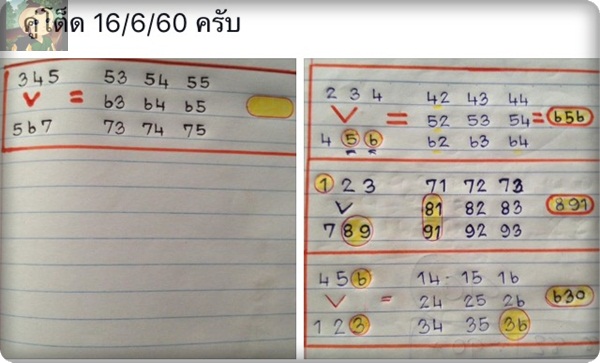 คู่โต็ด 16/6/60 ครับ
3 4 5 53 54 55
V = 63 64 65
5 6 7 73 74 75
2 3 4 42 43 44
V = 52 53 54 = 656
4 5 6 62 63 64
1 2 3 71 72 73
V 81 82 83 891
7 8 9 91 92 93
4 5 6 14 15 16
V = 24 25 26 630
1 2 3 34 35 36